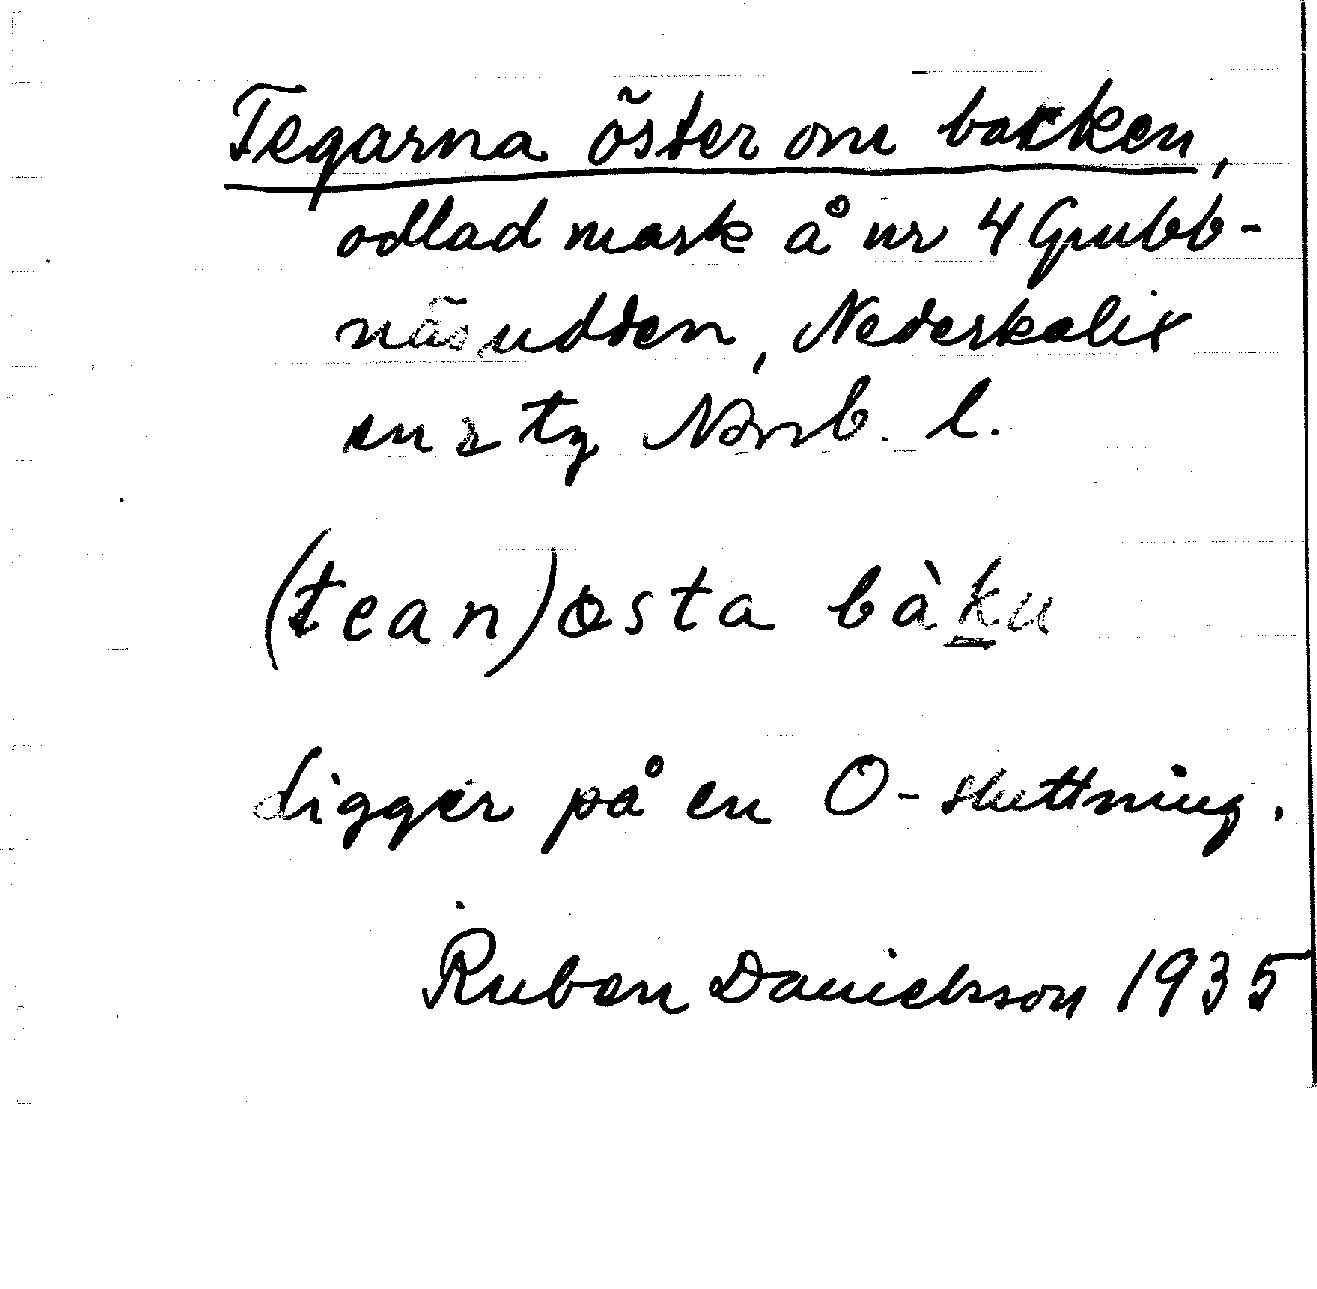 Tegarna öster om backen,
odlad mark å nr 4 Grubb-
näsudden, Nederkalix
sn o tg Norrb. l.
(tean) østa bàk̲u
Ligger på en O-sluttning.
Ruben Danielsson 1935